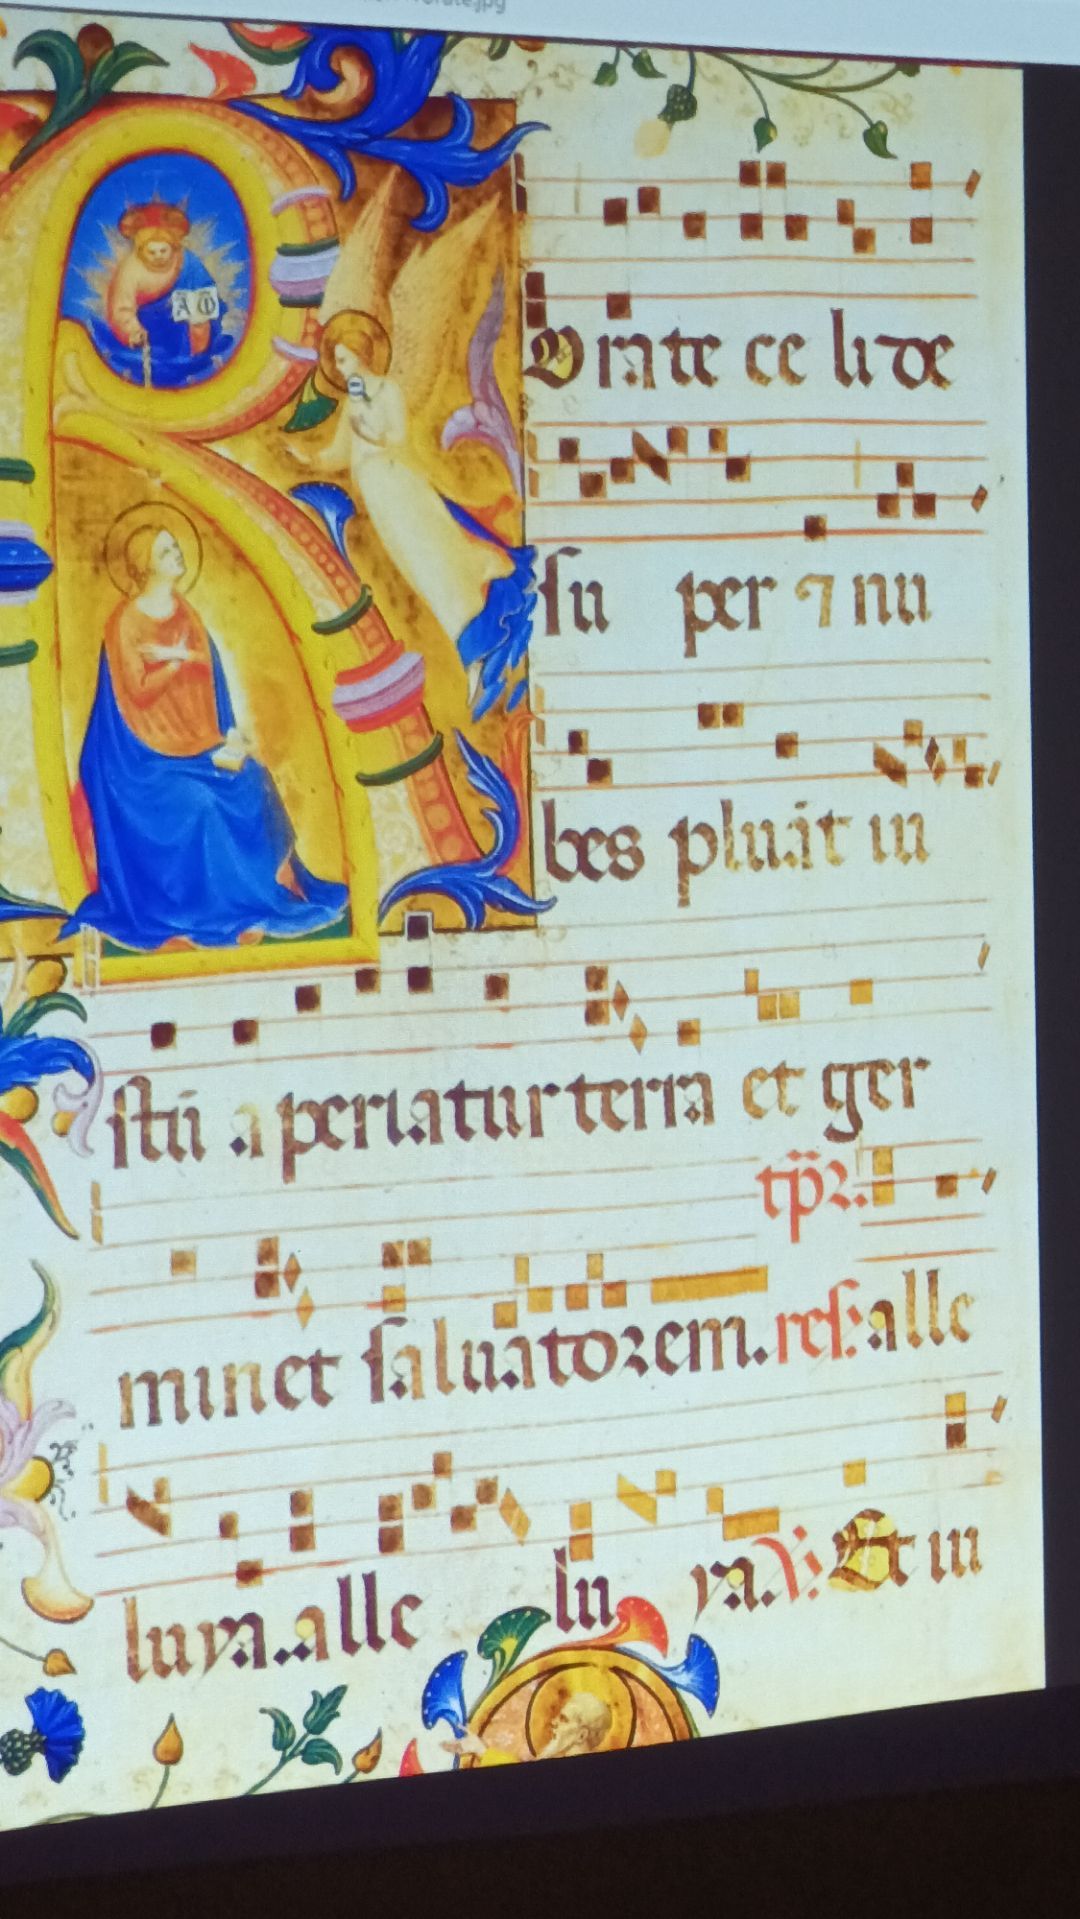 R
A ω
Orate celi de
su per ⁊ nu
bes pluāt iu
stū aperiatur terra et ger
tp̄r.
minet saluatorem. res. alle
luya. alle lu ya. ℣. Et in